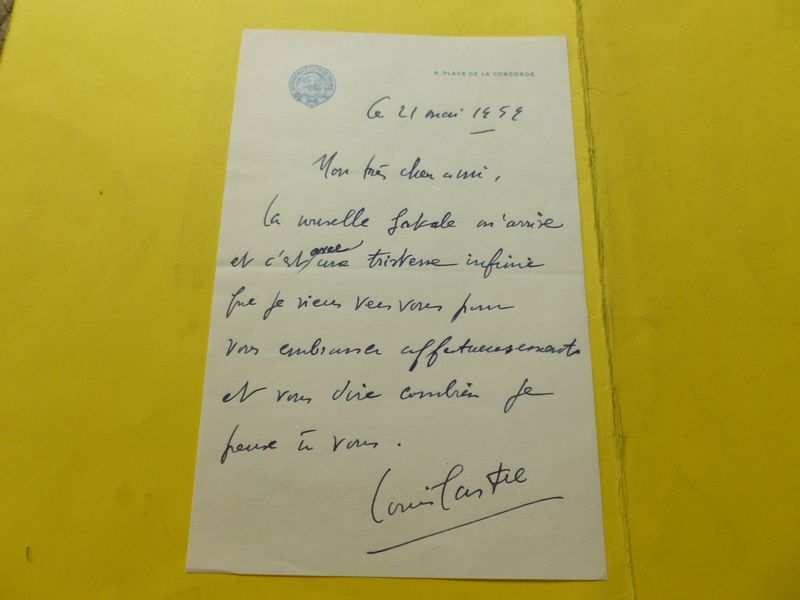 6, PLACE DE LA CONCORDE
Le 21 mai 1959
Mon très cher ami,
La nouvelle fatale m'arrive
et c'est avec une tristesse infinie
que je viens vers vous pour
vous embrasser affectueusement
et vous dire combien je
pense à vous.
Louis